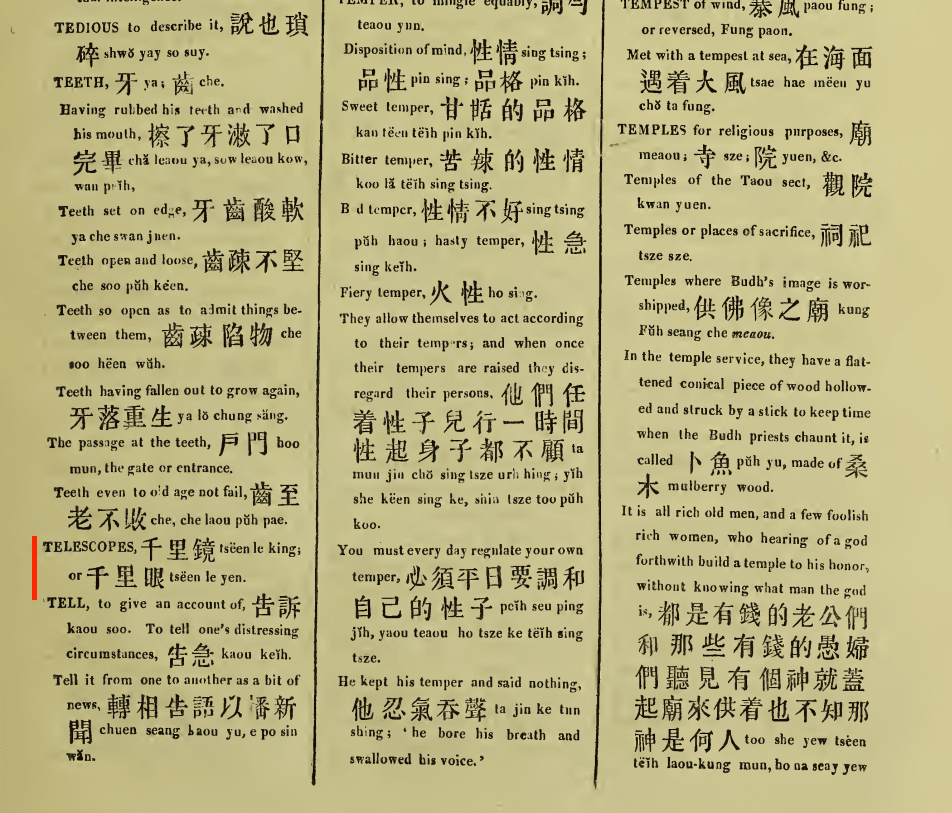 TEDIOUS to describe it, 說也瑣
碎 shwŏ yay so suy.
TEETH, 牙 ya; 齒 che.
Having rubbed his teeth and washed
his mouth, 擦了牙漱了口
完畢 chă leaou ya, sow leaou kow,
wan peĭh,
Teeth set on edge, 牙齒酸軟
ya che swan juen.
Teeth open and loose, 齒疎不堅
che soo pŭh këen.
Teeth so open as to admit things be-
tween them, 齒疎陷物 che
soo hëen wŭh.
Teeth having fallen out to grow again,
牙落重生 ya lŏ chung săng.
The passage at the teeth, 戶門 hoo
mun, the gate or entrance.
Teeth even to old age not fail, 齒至
老不敗 che, che laou pŭh pae.
TELESCOPES, 千里鏡 tsëen le king;
or 千里眼 tsëen le yen.
TELL, to give an account of, 告訴
kaou soo. To tell one's distressing
circumstances, 告急 kaou keĭh.
Tell it from one to another as a bit of
news, 轉相告語以播新
聞 chuen seang kaou yu, e po sin
wăn.
TEMPER, to mingle equably, 調勻
teaou yun.
Disposition of mind, 性情 sing tsing;
品性 pin sing; 品格 pin kĭh.
Sweet temper, 甘甜的品格
kan tëen tëĭh pin kĭh.
Bitter temper, 苦辣的性情
koo lă tëĭh sing tsing.
B d temper, 性情不好 sing tsing
pŭh haou; hasty temper, 性急
sing keĭh.
Fiery temper, 火性 ho sing.
They allow themselves to act according
to their tempers; and when once
their tempers are raised they dis-
regard their persons, 他們任
着性子兒行一時間
性起身子都不顧 ta
mun jin chŏ sing tsze urh hing; yĭh
she këen sing ke, shin tsze too pŭh
koo.
You must every day regulate your own
temper, 必須平日要調和
自己的性子 peĭh seu ping
jĭh, yaou teaou ho tsze ke tëĭh sing
tsze.
He kept his temper and said nothing,
他忍氣吞聲 ta jin ke tun
shing; 'he bore his breath and
swallowed his voice.'
TEMPEST of wind, 暴風 paou fung;
or reversed, Fung paou.
Met with a tempest at sea, 在海面
遇着大風 tsae hae mëen yu
chŏ ta fung.
TEMPLES for religious purposes, 廟
meaou; 寺 sze; 院 yuen, &c.
Temples of the Taou sect, 觀院
kwan yuen.
Temples or places of sacrifice, 祠祀
tsze sze.
Temples where Budh's image is wor-
shipped, 供佛像之廟 kung
Fŭh seang che meaou.
In the temple service, they have a flat-
tened conical piece of wood hollow-
ed and struck by a stick to keep time
when the Budh priests chaunt it, is
called 卜魚 pŭh yu, made of 桑
木 mulberry wood.
It is all rich old men, and a few foolish
rich women, who hearing of a god
forthwith build a temple to his honor,
without knowing what man the god
is, 都是有錢的老公們
和那些有錢的愚婦
們聽見有個神就蓋
起廟來供着也不知那
神是何人 too she yew tsëen
tëĭh laou-kung mun, ho na seay yew